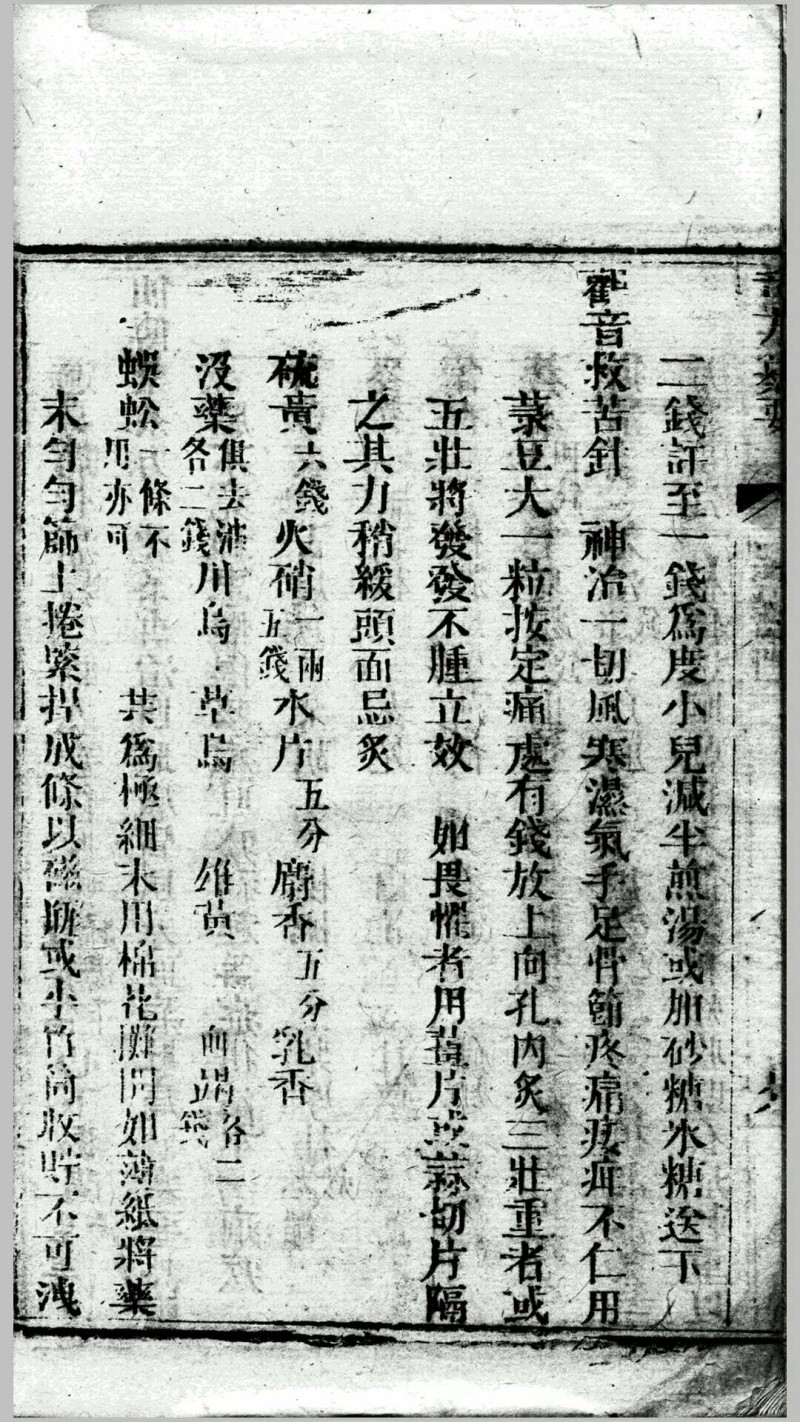 二錢許至一錢爲度小兒減半煎湯或加砂糖冰糖送下
觀音救苦針　神治一切風寒濕氣手足骨節疼痛痰疽不仁用
菉豆大一粒按定痛處有錢放上向孔內炙三壯重者或
五壯將發發不腫立效　如畏懼者用薑片或蒜切片隔
之其力稍緩頭面忌炙
硫黃六錢　火硝一兩五錢　水片五分　麝香五分　乳香
沒藥俱去油各二錢　川烏　草烏　雄黃　血竭各二錢
蜈蚣一條不用亦可　共爲極細末用棉花攤開如薄紙將藥
末勻勻篩上捲緊捍成條以磁瓶或小竹筒收貯不可洩